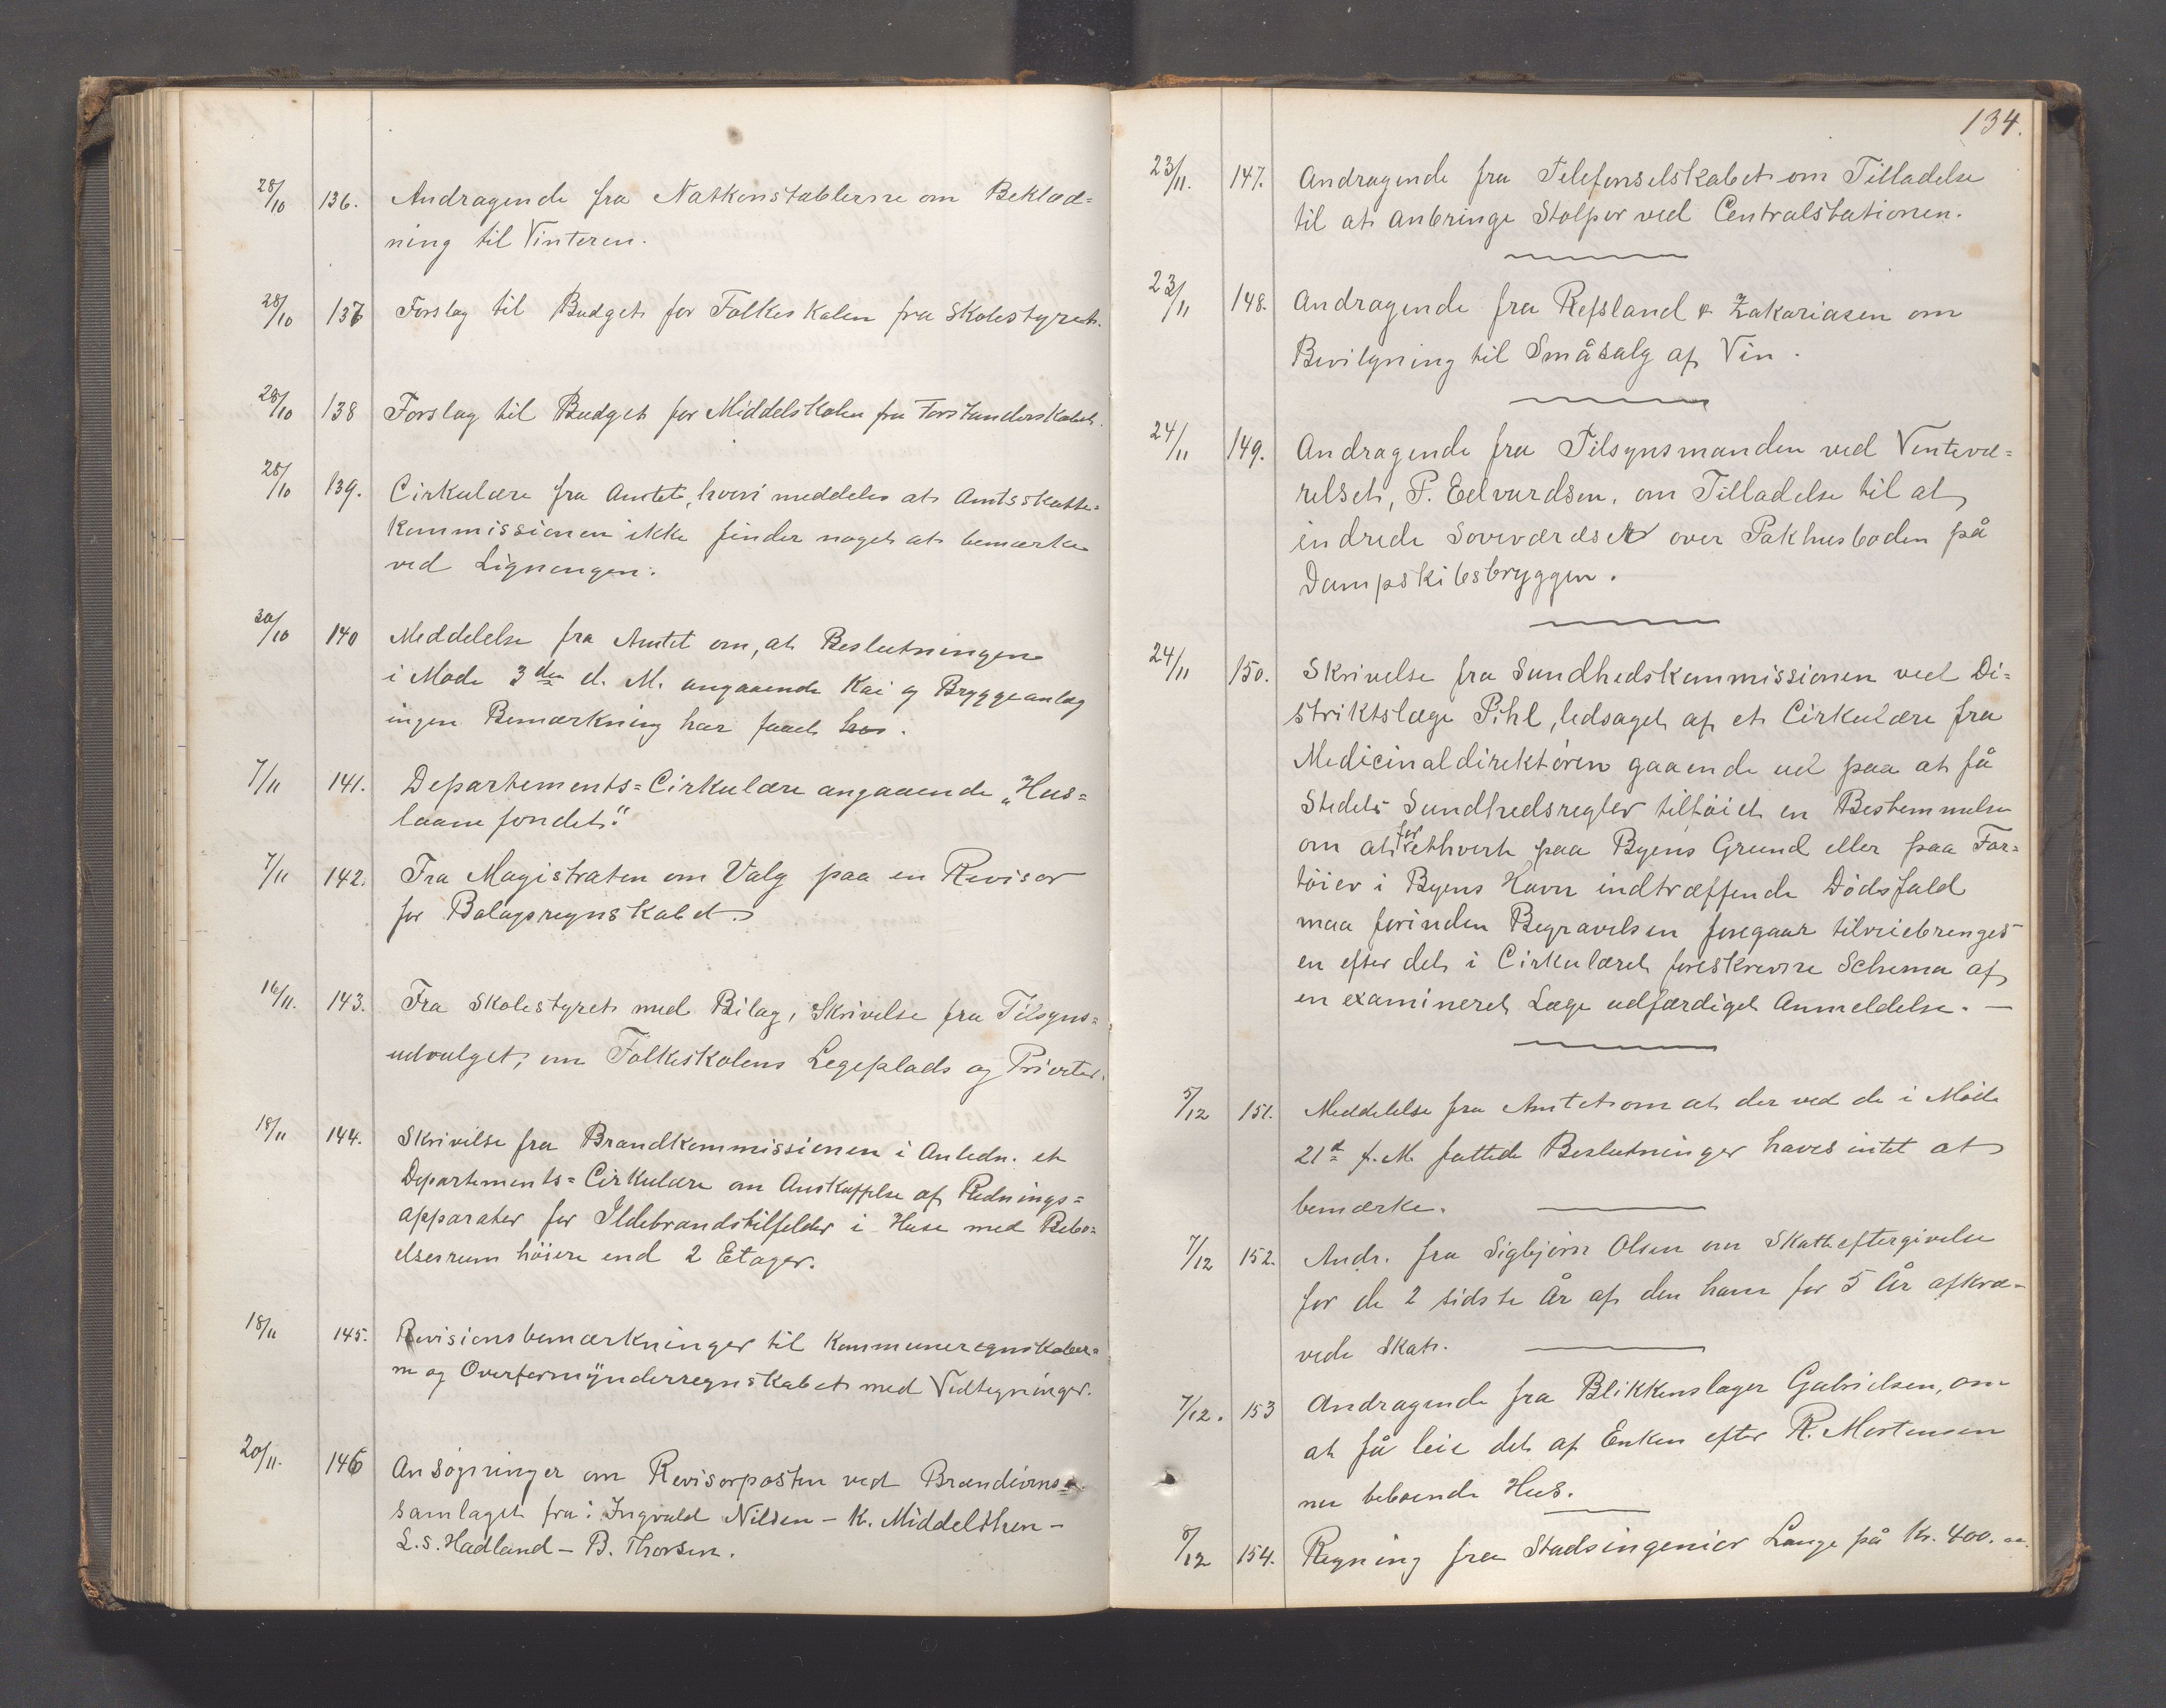 28/10 136. Andragende fra Natkonstablerne om Beklæd=
ning til Vinteren.
28/10 137 Forslag til Budget for Folkeskolen fra Skolestyret.
28/10 138 Forslag til Budget for Middelskolen fra Forstanderskabet.
28/10 139. Cirkulære fra Amtet, hvori meddeles at Amtsskatte=
kommissionen ikke finder noget at bemærke
ved Ligningen.
30/10 140 Meddelelse fra Amtet om, at Beslutningen
i Møde 3die d. M. angaaende Kai og Bryggeanlæg
ingen Bemærkning har faaet hos.
7/11 141. Departements=Cirkulære angaaende "Hus=
laanefondet."
7/11 142. Fra Magistraten om Valg paa en Revisor
for Bolagsregnskabet.
16/11. 143. Fra Skolestyret med Bilag, Skrivelse fra Tilsyns=
udvalget, om Folkeskolens Legeplads og Priveter.
18/11 144. Skrivelse fra Brandkommissionen i Anledn. et
Departements=Cirkulære om Anskaffelse af Rednings=
apparater for Ildebrandstilfelder i Huse med Bebo=
elsesrum høiere end 2 Etager.
18/11 145. Revisionsbemærkninger til Kommuneregnskaber=
ne og Overformynderregnskabet med Vedtegninger.
20/11. 146 Ansøgninger om Revisorposten ved Brændevins=
samlaget fra: Ingvald Nilsen – K. Middelthon –
L. S. Hadland – B. Thorsen.
134.
23/11. 147. Andragende fra Telefonselskabet om Tilladelse
til at anbringe Stolper ved Centralstationen.
23/11 148. Andragende fra Refsland & Zakariasen om
Bevilgning til Småsalg af Vin.
24/11 149. Andragende fra Tilsynsmanden ved Ventevæ=
relset, P. Edvardsen, om Tilladelse til at
indrede Soveværelset over Pakhusboden på
Dampskibsbryggen.
24/11 150. Skrivelse fra Sundhedskommissionen ved Di=
striktslæge Pihl, ledsaget af et Cirkulære fra
Medicinaldirektøren gaaende ud paa at få
Stedets Sundhedsregler tilføiet en Bestemmelse
om at for ethvert paa Byens Grund eller paa Far=
tøier i Byens Havn indtræffende Dødsfald
maa forinden Begravelsen foregaar tilveiebrenges
en efter det i Cirkulæret foreskrevne Schema af
en examineret Læge udfærdiget Anmeldelse. –
5/12 151. Meddelelse fra Amtet om at der ved de i Møde
21de f. M. fattede Beslutninger haves intet at
bemærke.
7/12 152. Andr. fra Sigbjørn Olsen om Skatteeftergivelse
for de 2 sidste År af den ham for 5 År afkræ-
vede Skat.
7/12. 153 Andragende fra Blikkenslager Gabrielsen, om
at få leie det af Enken efter R. Mortensen
nu beboende Hus.
8/12 154. Regning fra Stadsingeniør Lange på Kr. 400.